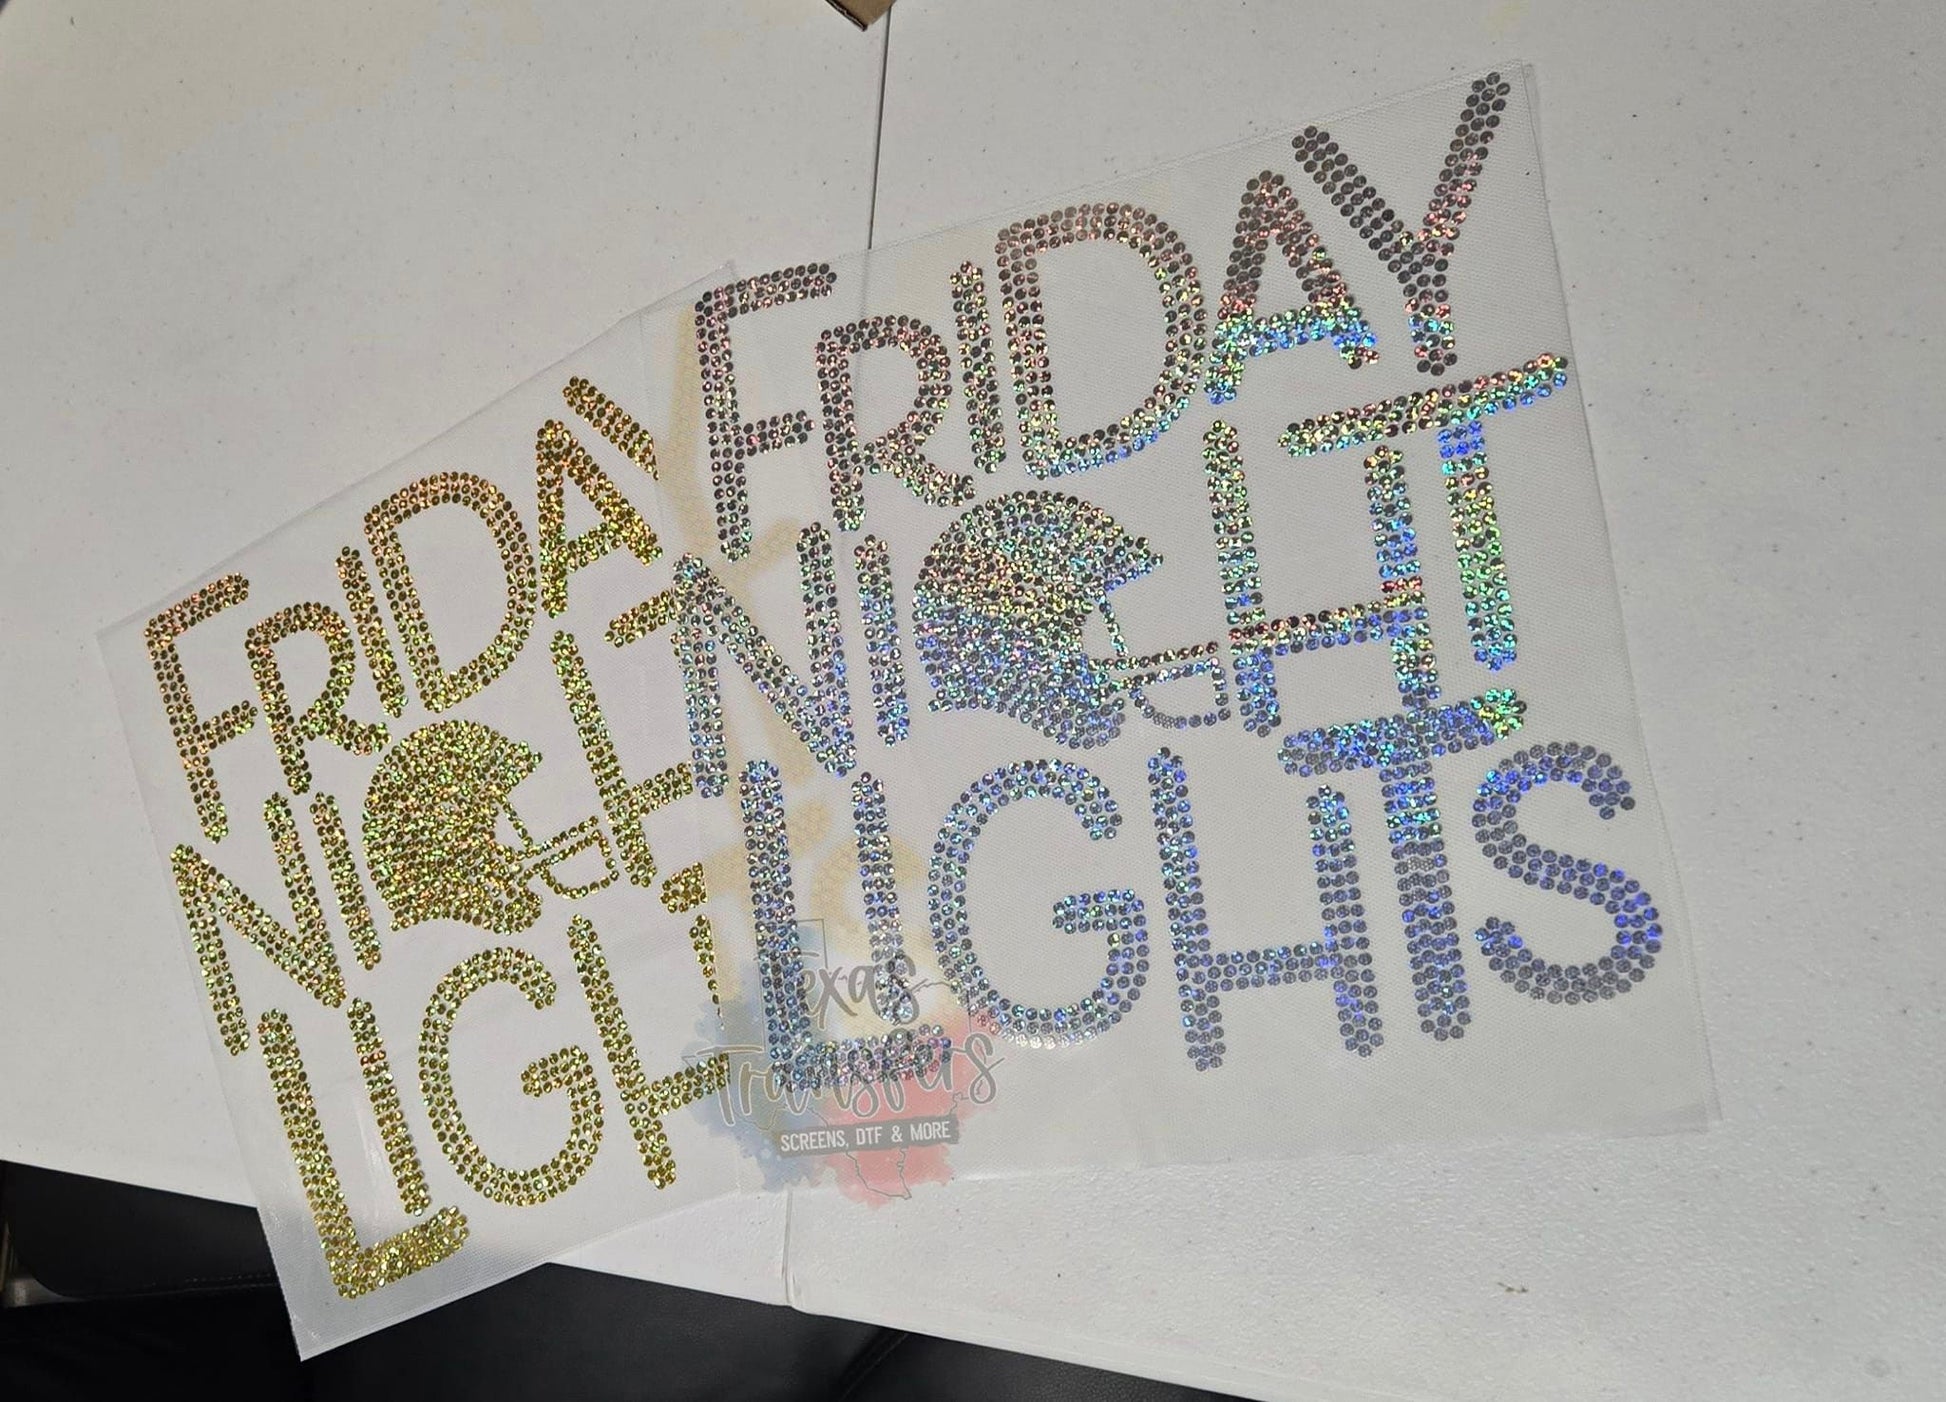 FRIDAY
NIGHT
LIGH
FRIDAY
NIGHT
LIGHTS
Texas
Transfers
SCREENS, DTF & MORE